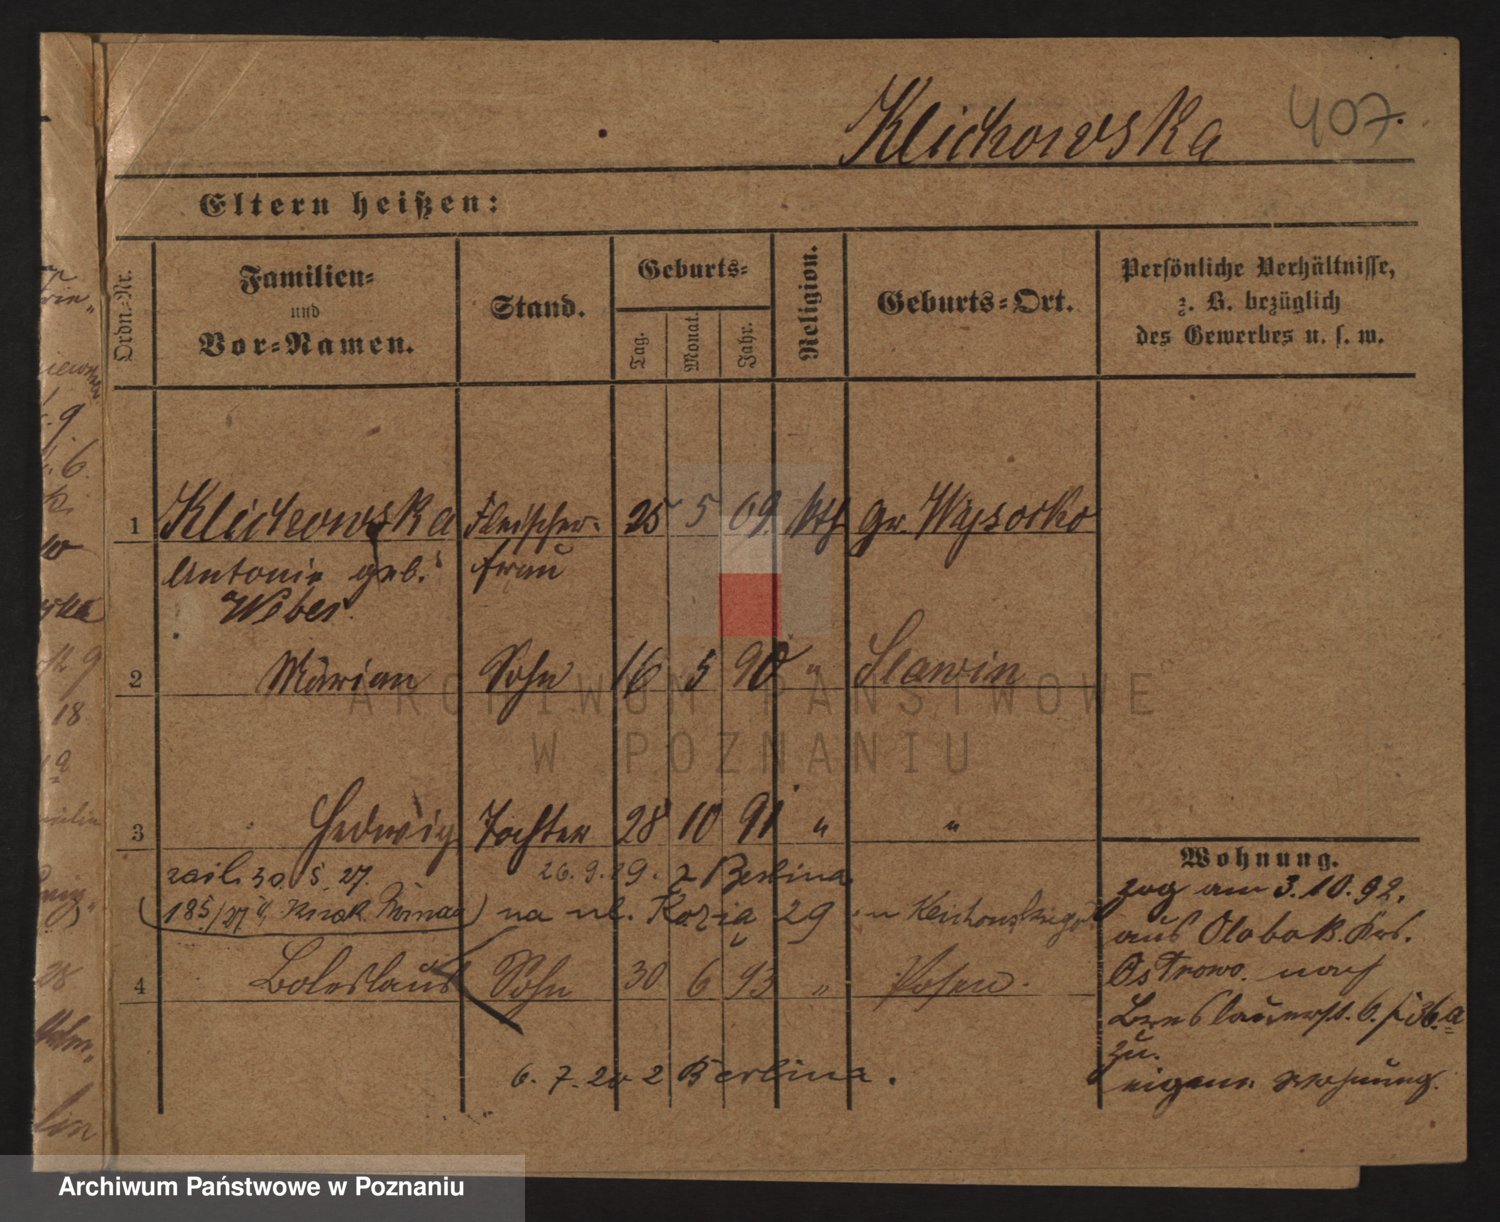 Klichowska 407.
Eltern heißen:
Ordn.-Nr. Familien- und Vor-Namen. Stand. Geburts- Tag. Monat. Jahr. Religion. Geburts-Ort. Persönliche Verhältnisse, z. B. bezüglich des Gewerbes u. s. w.
1 Klichowska Fleischer- 25 5 69. kth gr. Wysocko
Antonie geb. frau
Weber.
2 Marian Sohn 16 5 90 " Slawin
3 Hedwig Tochter 28 10 91 " "
Wohnung.
30. 5. 27. 26. 9. 29. z Berlina
zog am 3.10.92.
(185/27 ) na ul. Kozia 29
aus Olobok Krs.
4 Boleslaus Sohn 30 6 93 " Posen.
Ostrowo. nach
Breslauerst.
zu.
6. 7. 20 z Berlina.
eigene Wohnung.
ARCHIWUM PAŃSTWOWE
W POZNANIU
Archiwum Państwowe w Poznaniu